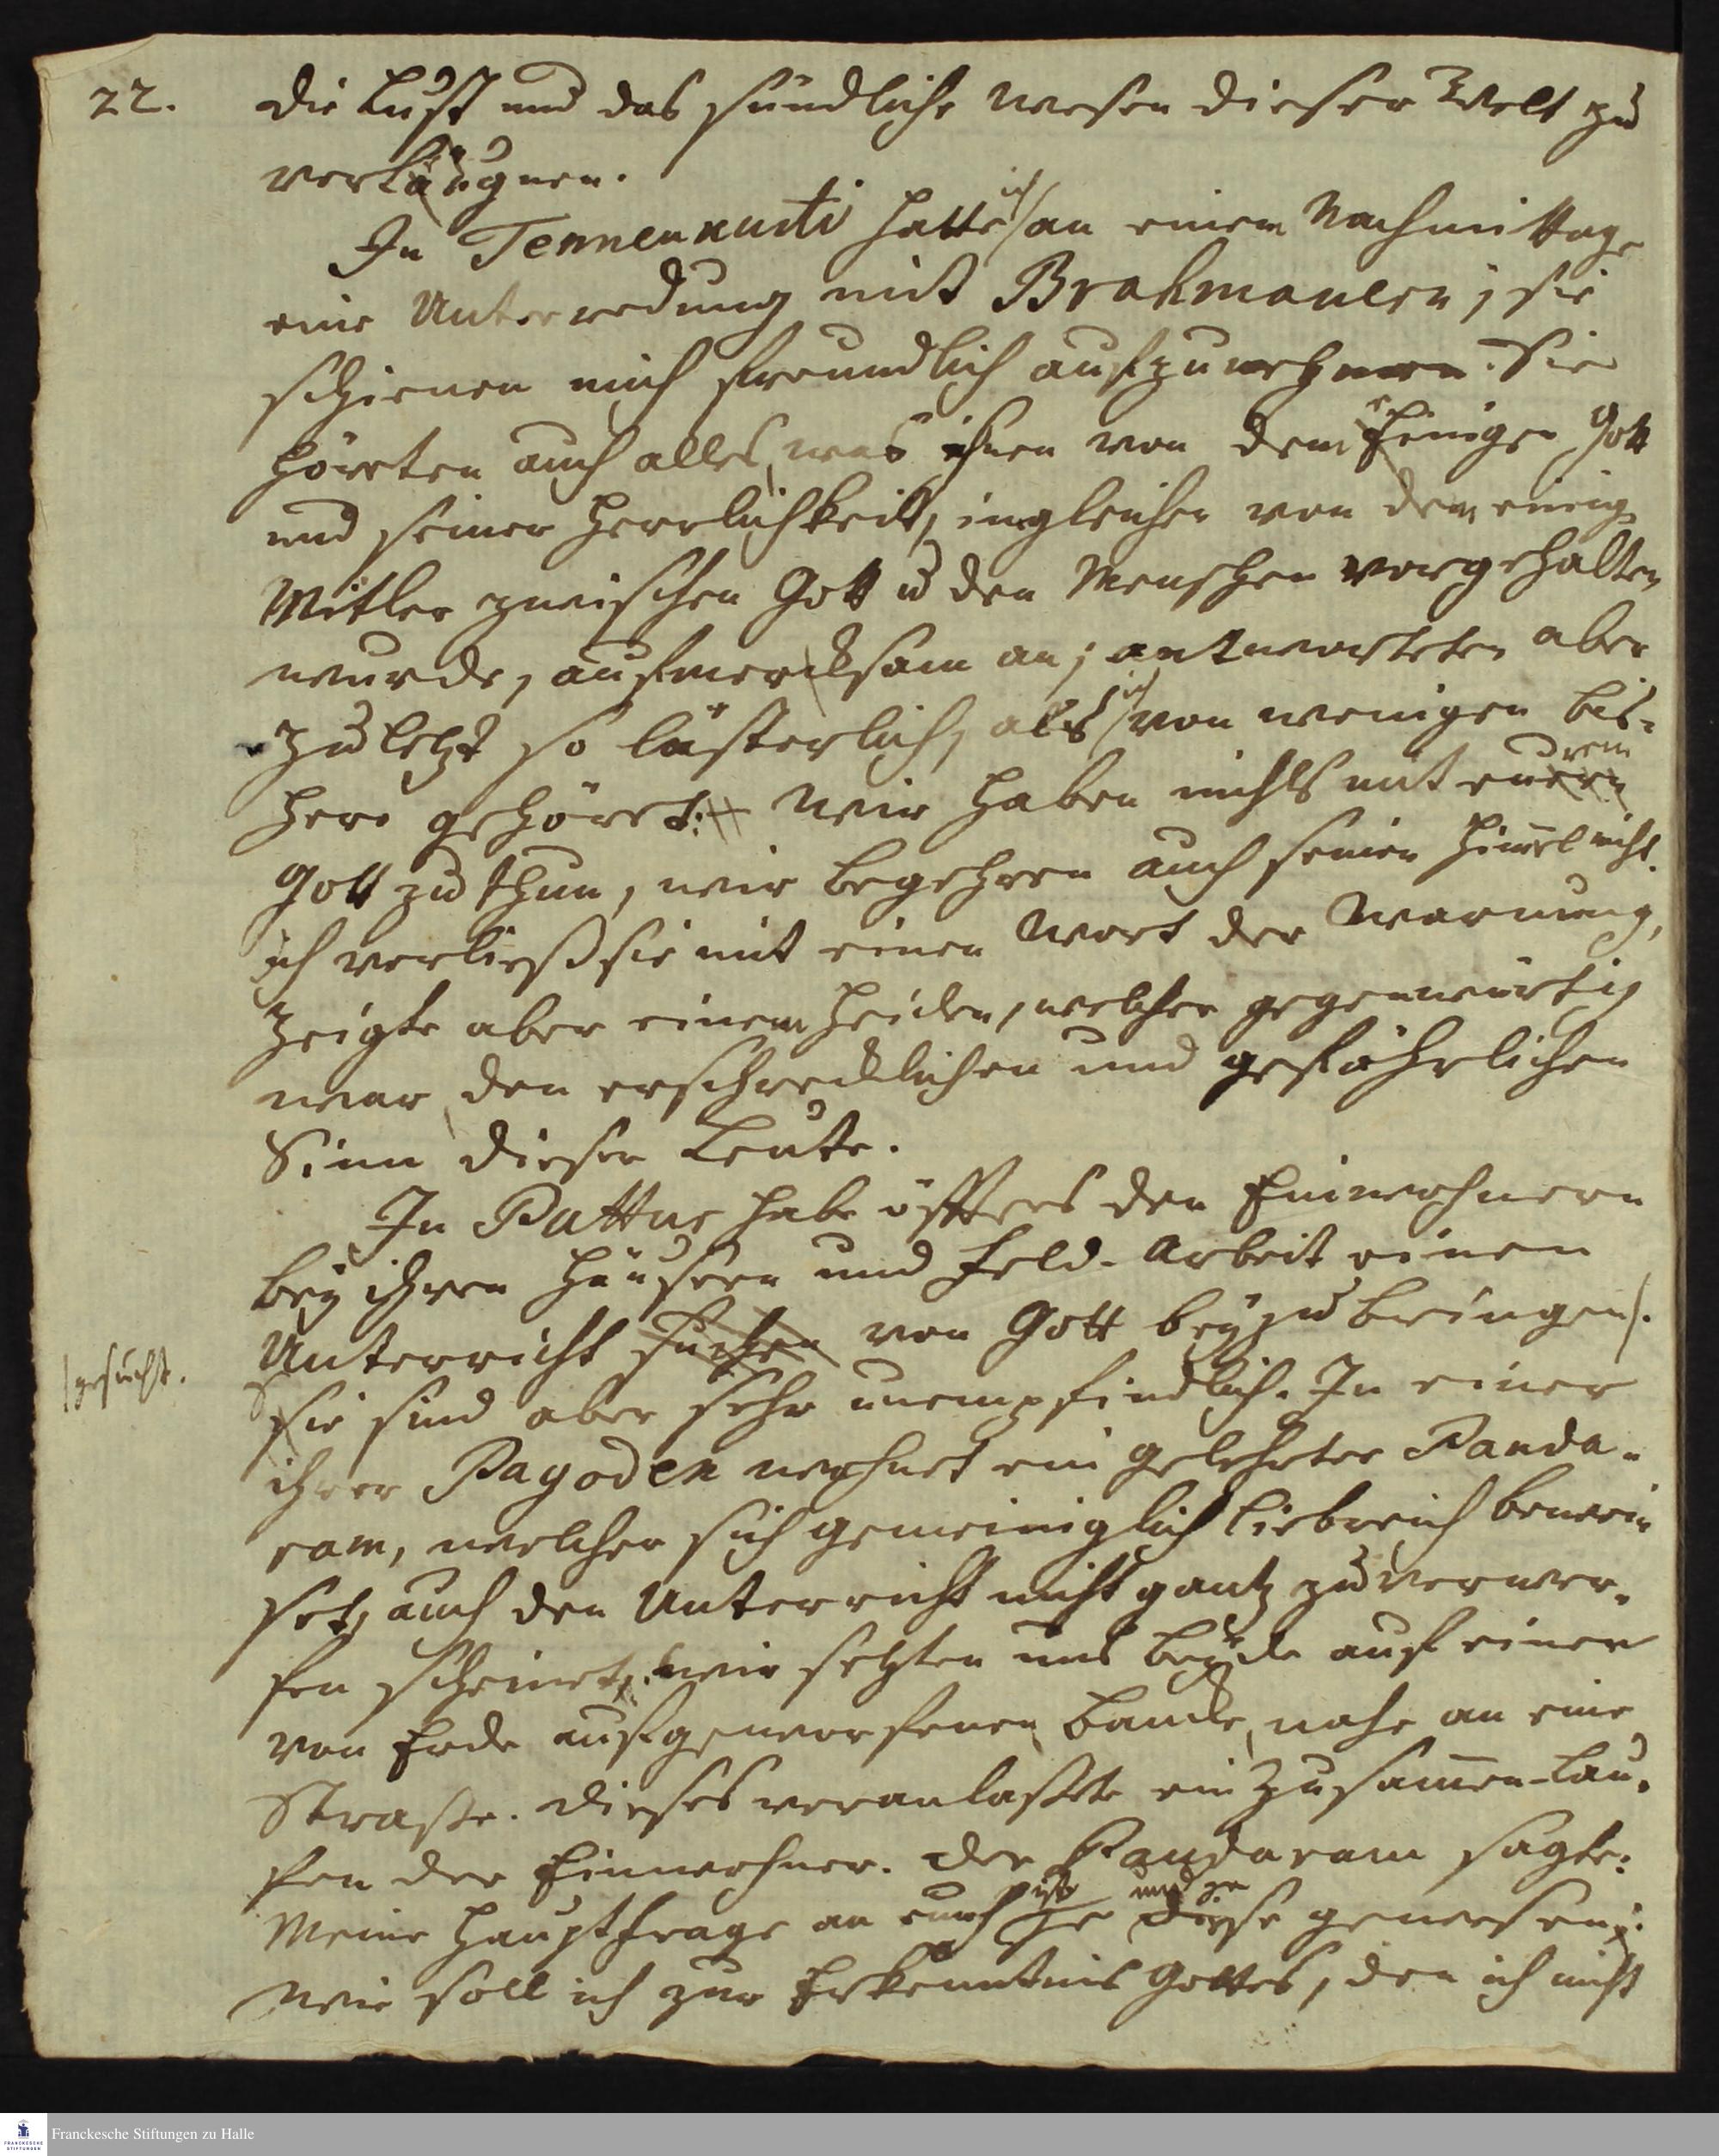 22. die Lust und das sündliche Wesen dieser Welt zu
verläugnen.
In Tennenkudi hatte ich an einem Nachmittage
eine Unterredung mit Brahmanern; sie
schienen mich freundlich aufzunehmen. Sie
hörten auch alles, was ihnen von dem Einigen Gott
und seiner Herrlichkeit, ingleichen von dem einig
Mitler zwischen Gott u den Menschen vorgehalten
wurde, aufmercksam an; antworteten aber
zuletzt so lästerlich, als ich von wenigen bis-
hero gehöret: Wir haben nichts mit eurem
Gott zu thun, wir begehren auch seinen Him̅el nicht.
ich verließ sie mit einen Wort der Warnung,
zeigte aber einem Heiden, welcher gegenwärtig
war, den erschrecklichen und gefährlichen
Sinn dieser Leute.
In Puttur habe öffters den Einwohnern
bey ihren Häusern und Feld-Arbeit einen
Unterricht suchen von Gott beyzubringen/.
/gesucht.
Sie sind aber sehr unempfindlich. In einer
ihrer Pagoden wohnet ein gelehrter Panda-
ram, welcher sich gemeiniglich liebreich bewei-
set, auch den Unterricht nicht gantz zu verwer-
fen scheinet. Wir setzten uns beyde auf einer
von Erde aufgeworfenen Bancke, nahe an eine
Straße. Dieses veranlaßte ein Zusam̅en-Lau-
fen der Einwohner. Der Pandaram sagte:
Meine Hauptfrage an euch ist diese gewesen:
Wie soll ich zur Erkenntnis Gottes, den ich nicht
Franckesche Stiftungen zu Halle